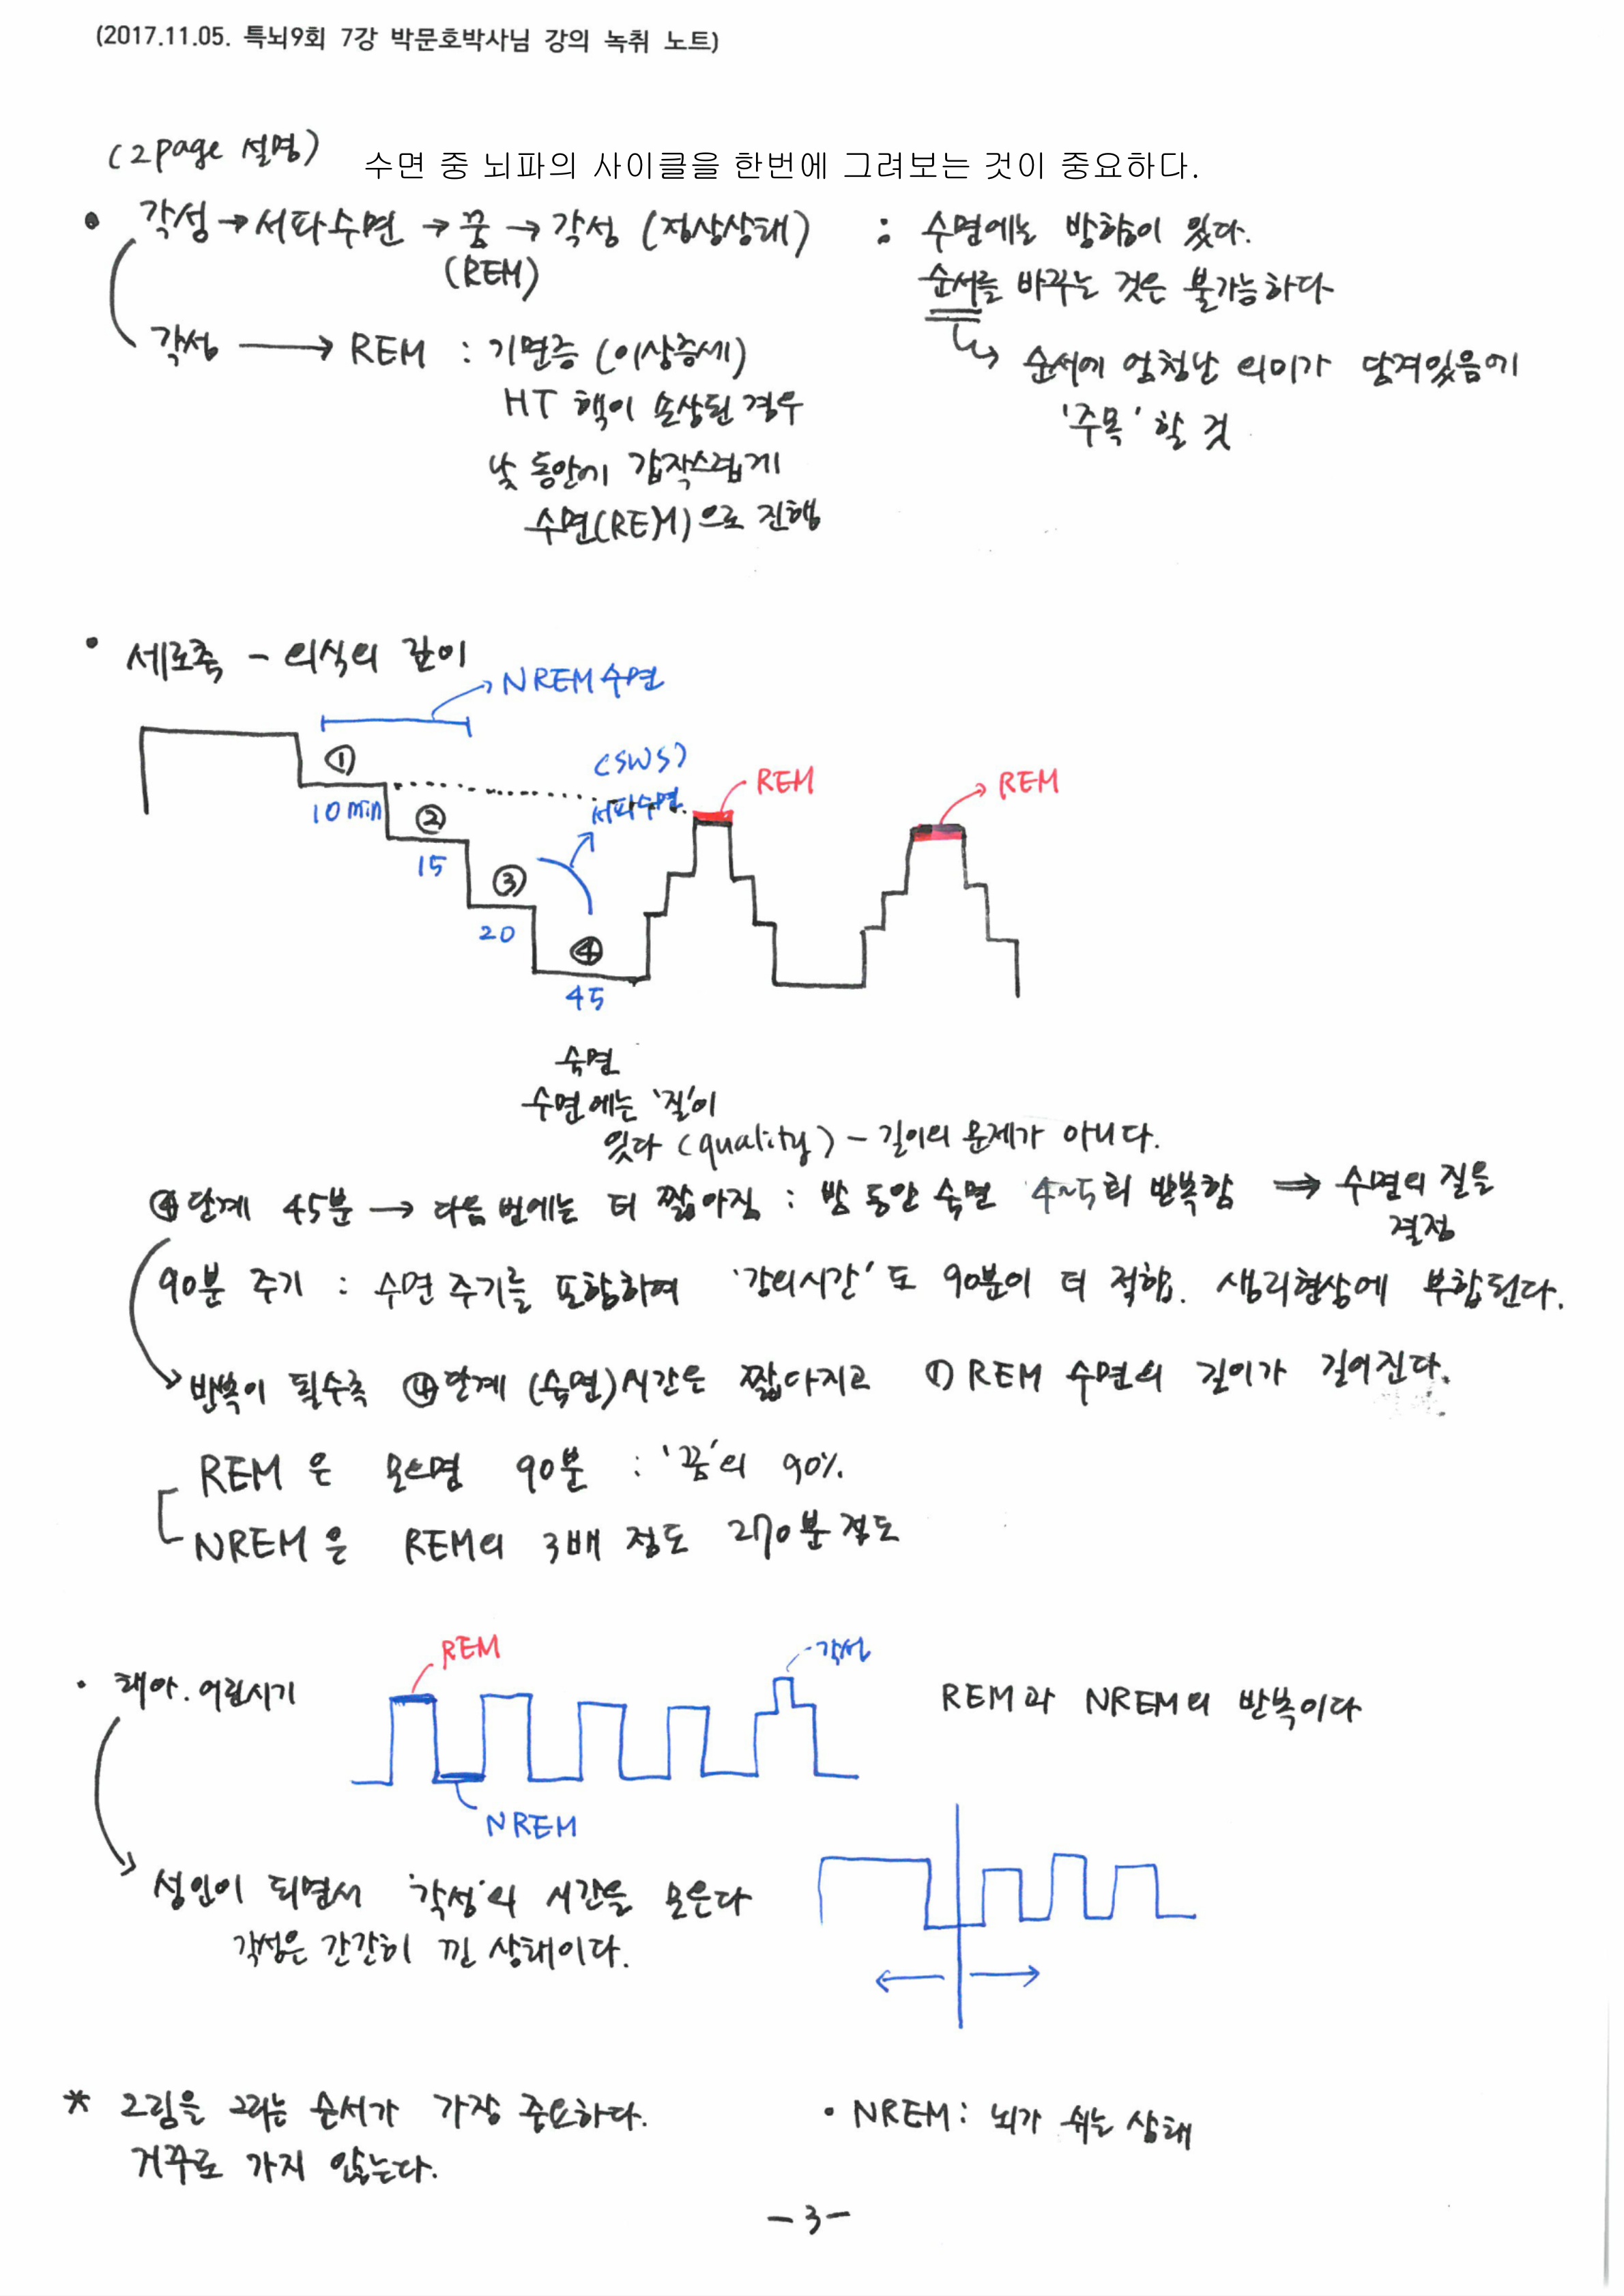 (2017.11.05. 특뇌9회 7강 박문호박사님 강의 녹취 노트)
(2page 설명) 수면 중 뇌파의 사이클을 한번에 그려보는 것이 중요하다.
• 각성 → 서파수면 → 꿈 → 각성 (정상상태) : 수면에는 방향이 있다.
(REM) 순서를 바꾸는 것은 불가능하다
각성 → REM : 기면증 (이상증세)
↳ 순서에 엄청난 의미가 담겨있음에
HT 핵이 손상된 경우
'주목' 할 것
낮 동안에 갑작스럽게
수면(REM)으로 진행
• 세로축 - 의식의 깊이
→ NREM 수면
① (SWS) REM REM
10 min ② 서파수면
15 ③
20 ④
45
숙면
수면에는 '질'이
있다 (quality) - 길이의 문제가 아니다.
④단계 45분 → 다음 번에는 더 짧아짐 : 밤 동안 숙면 4~5회 반복함 ⇒ 수면의 질을
결정
90분 주기 : 수면 주기를 포함하여 '강의시간'도 90분이 더 적합. 생리현상에 부합된다.
→ 반복이 될수록 ④단계 (숙면)시간은 짧아지고 ① REM 수면의 길이가 길어진다.
REM은 모으면 90분 : '꿈'의 90%
NREM은 REM의 3배 정도 270분정도
REM 각성
• 태아.어린시기 REM과 NREM의 반복이다
NREM
→ 성인이 되면서 '각성'의 시간을 모은다
각성은 간간히 낀 상태이다.
* 그림을 그리는 순서가 가장 중요하다. • NREM : 뇌가 쉬는 상태
거꾸로 가지 않는다.
- 3 -